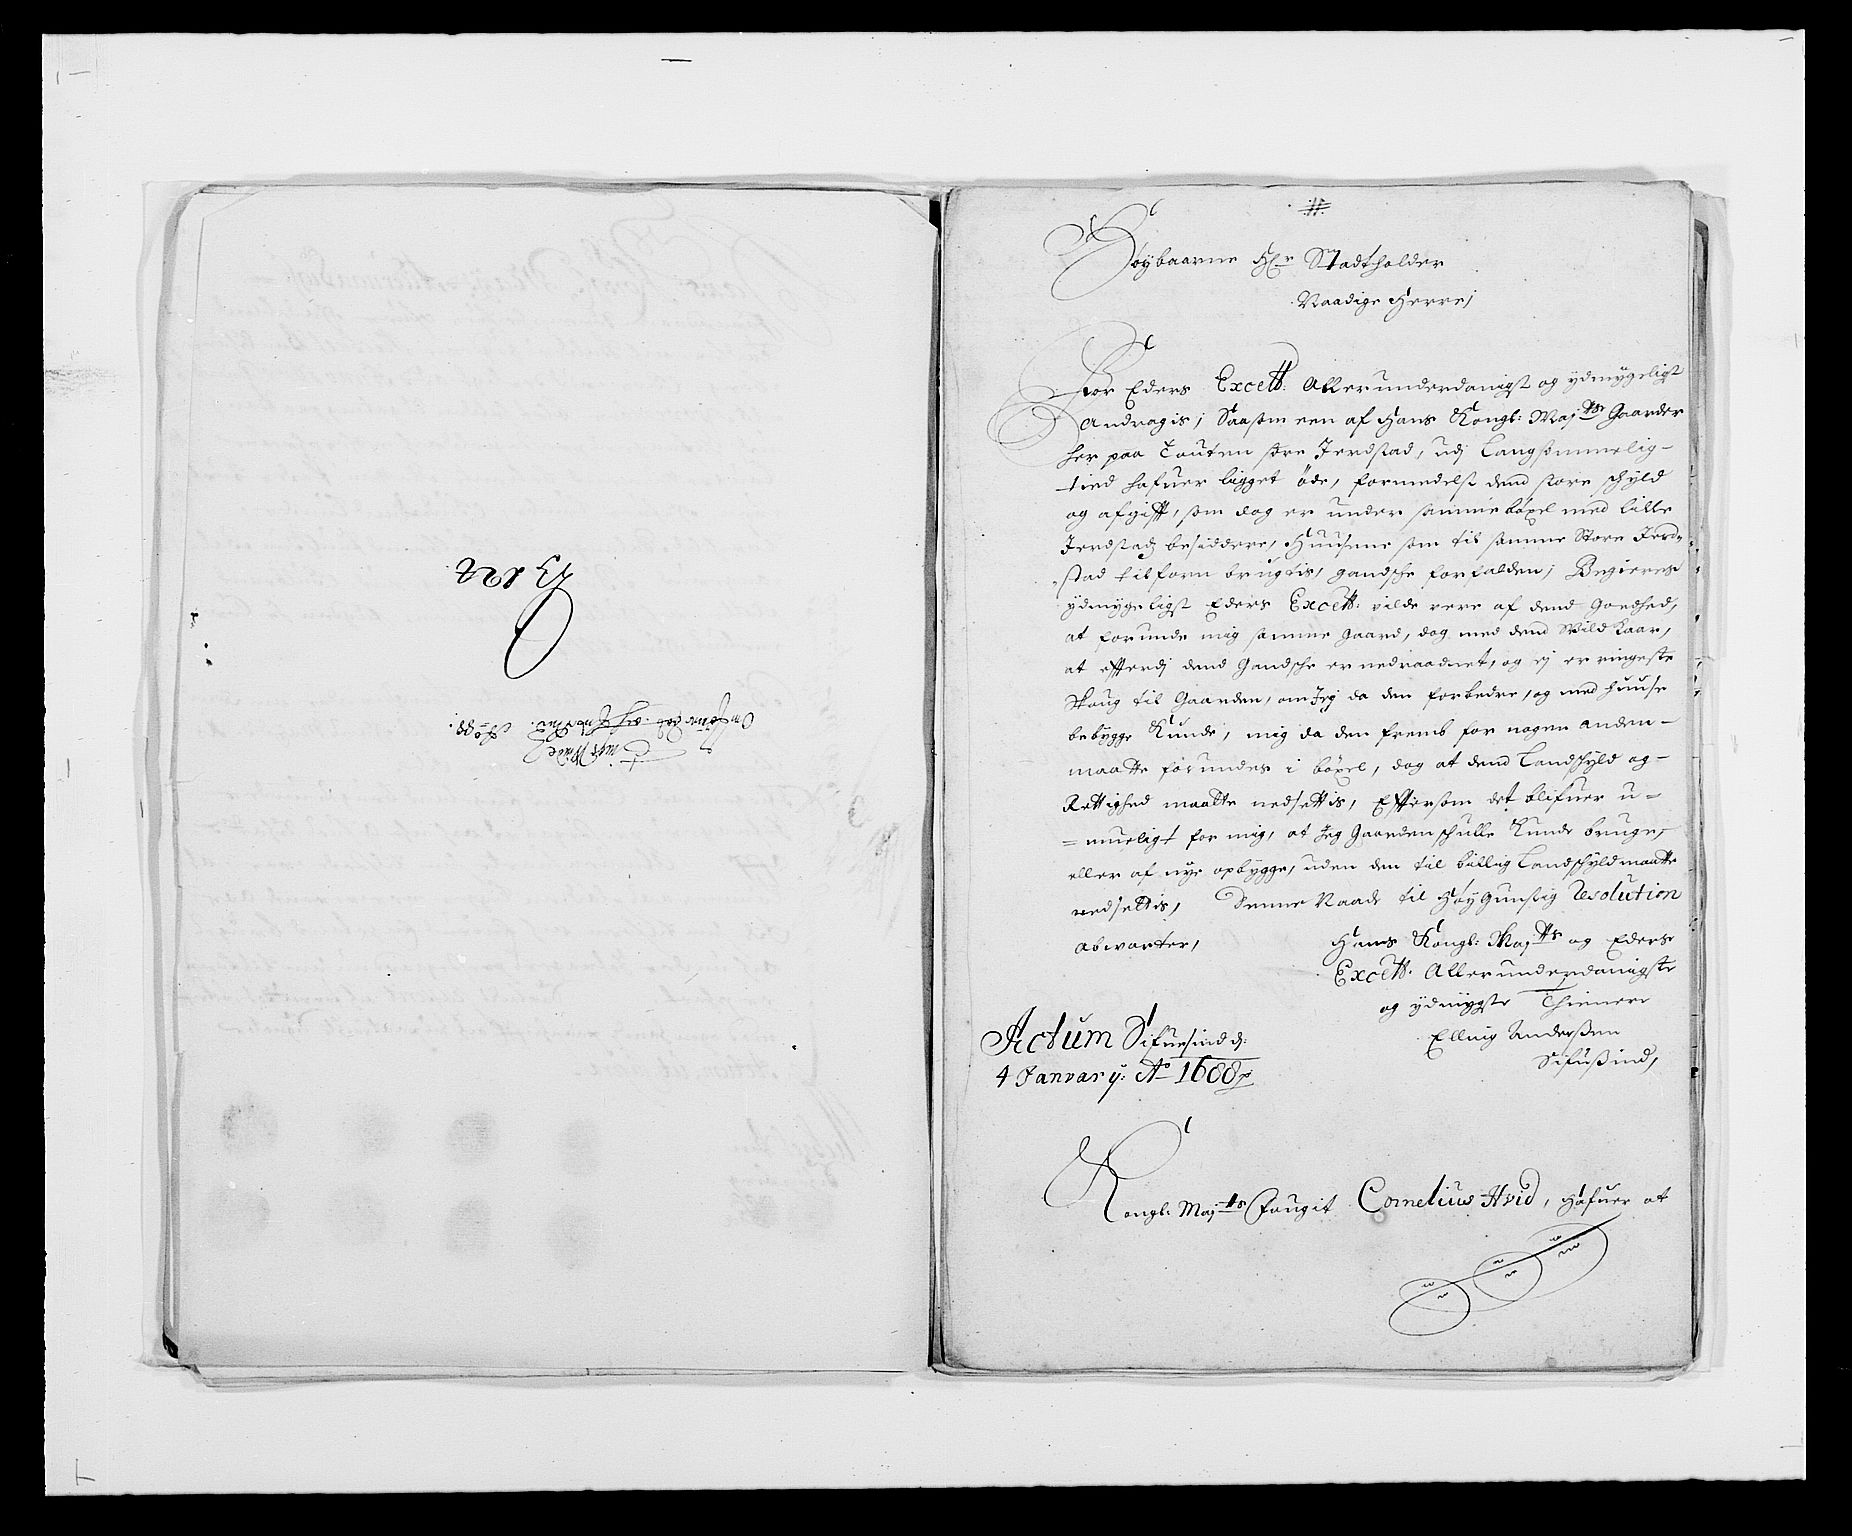 Høybaarne Hr Stadtholder
Naadige Herre,
For Eders Excell: Allerunderdanigst og ydmygeligst
Andragis, Saasom een af Hans Kongl: Maj:ts Gaarder
her paa Touten store Jerdstad, udj Langsommelig-
tied hafuer ligget öde, formedelst dend store schyld
og afgifft, som dog er under samme böxel med lille
Jerdstad besiddere, Huusene som til samme Store Jerd-
stad tilforn brugtis, gandsche forfalden, Begieres
ydmygeligst Eders Excell: vilde vere af dend Goedhed,
at forunde mig samme Gaard, dog med dend Vilckaar,
at efftterdj dend Gandsche er nedraadnet, og ej er ringeste
Skoug til Gaarden, om Jeg da den forbedre, og med huuse
bebygge Kunde, mig da den fremb for nogen anden-
maatte forundes i böxel, dog at dend Landschyld og-
Rettighed maatte nedsettis, Efftersom det blifuer u=
=mueligt for mig, at Jeg Gaarden schulle Kunde bruge,
eller af nye opbygge, uden den til billig Landschyld maatte
nedsettis, Denne Naade til Høygunstig Resolution
abwarter,
Hans Kongl: Maj:ts og Eders
Excell: Allerunderdanigste
og ydmygste Thiener
Elling Anderßen
Sifußind,
Actum Sifuesind d:
4 January: Ao 1688
Kongl: Maj:ts Fougit Cornelius Hvid, Hafuer at